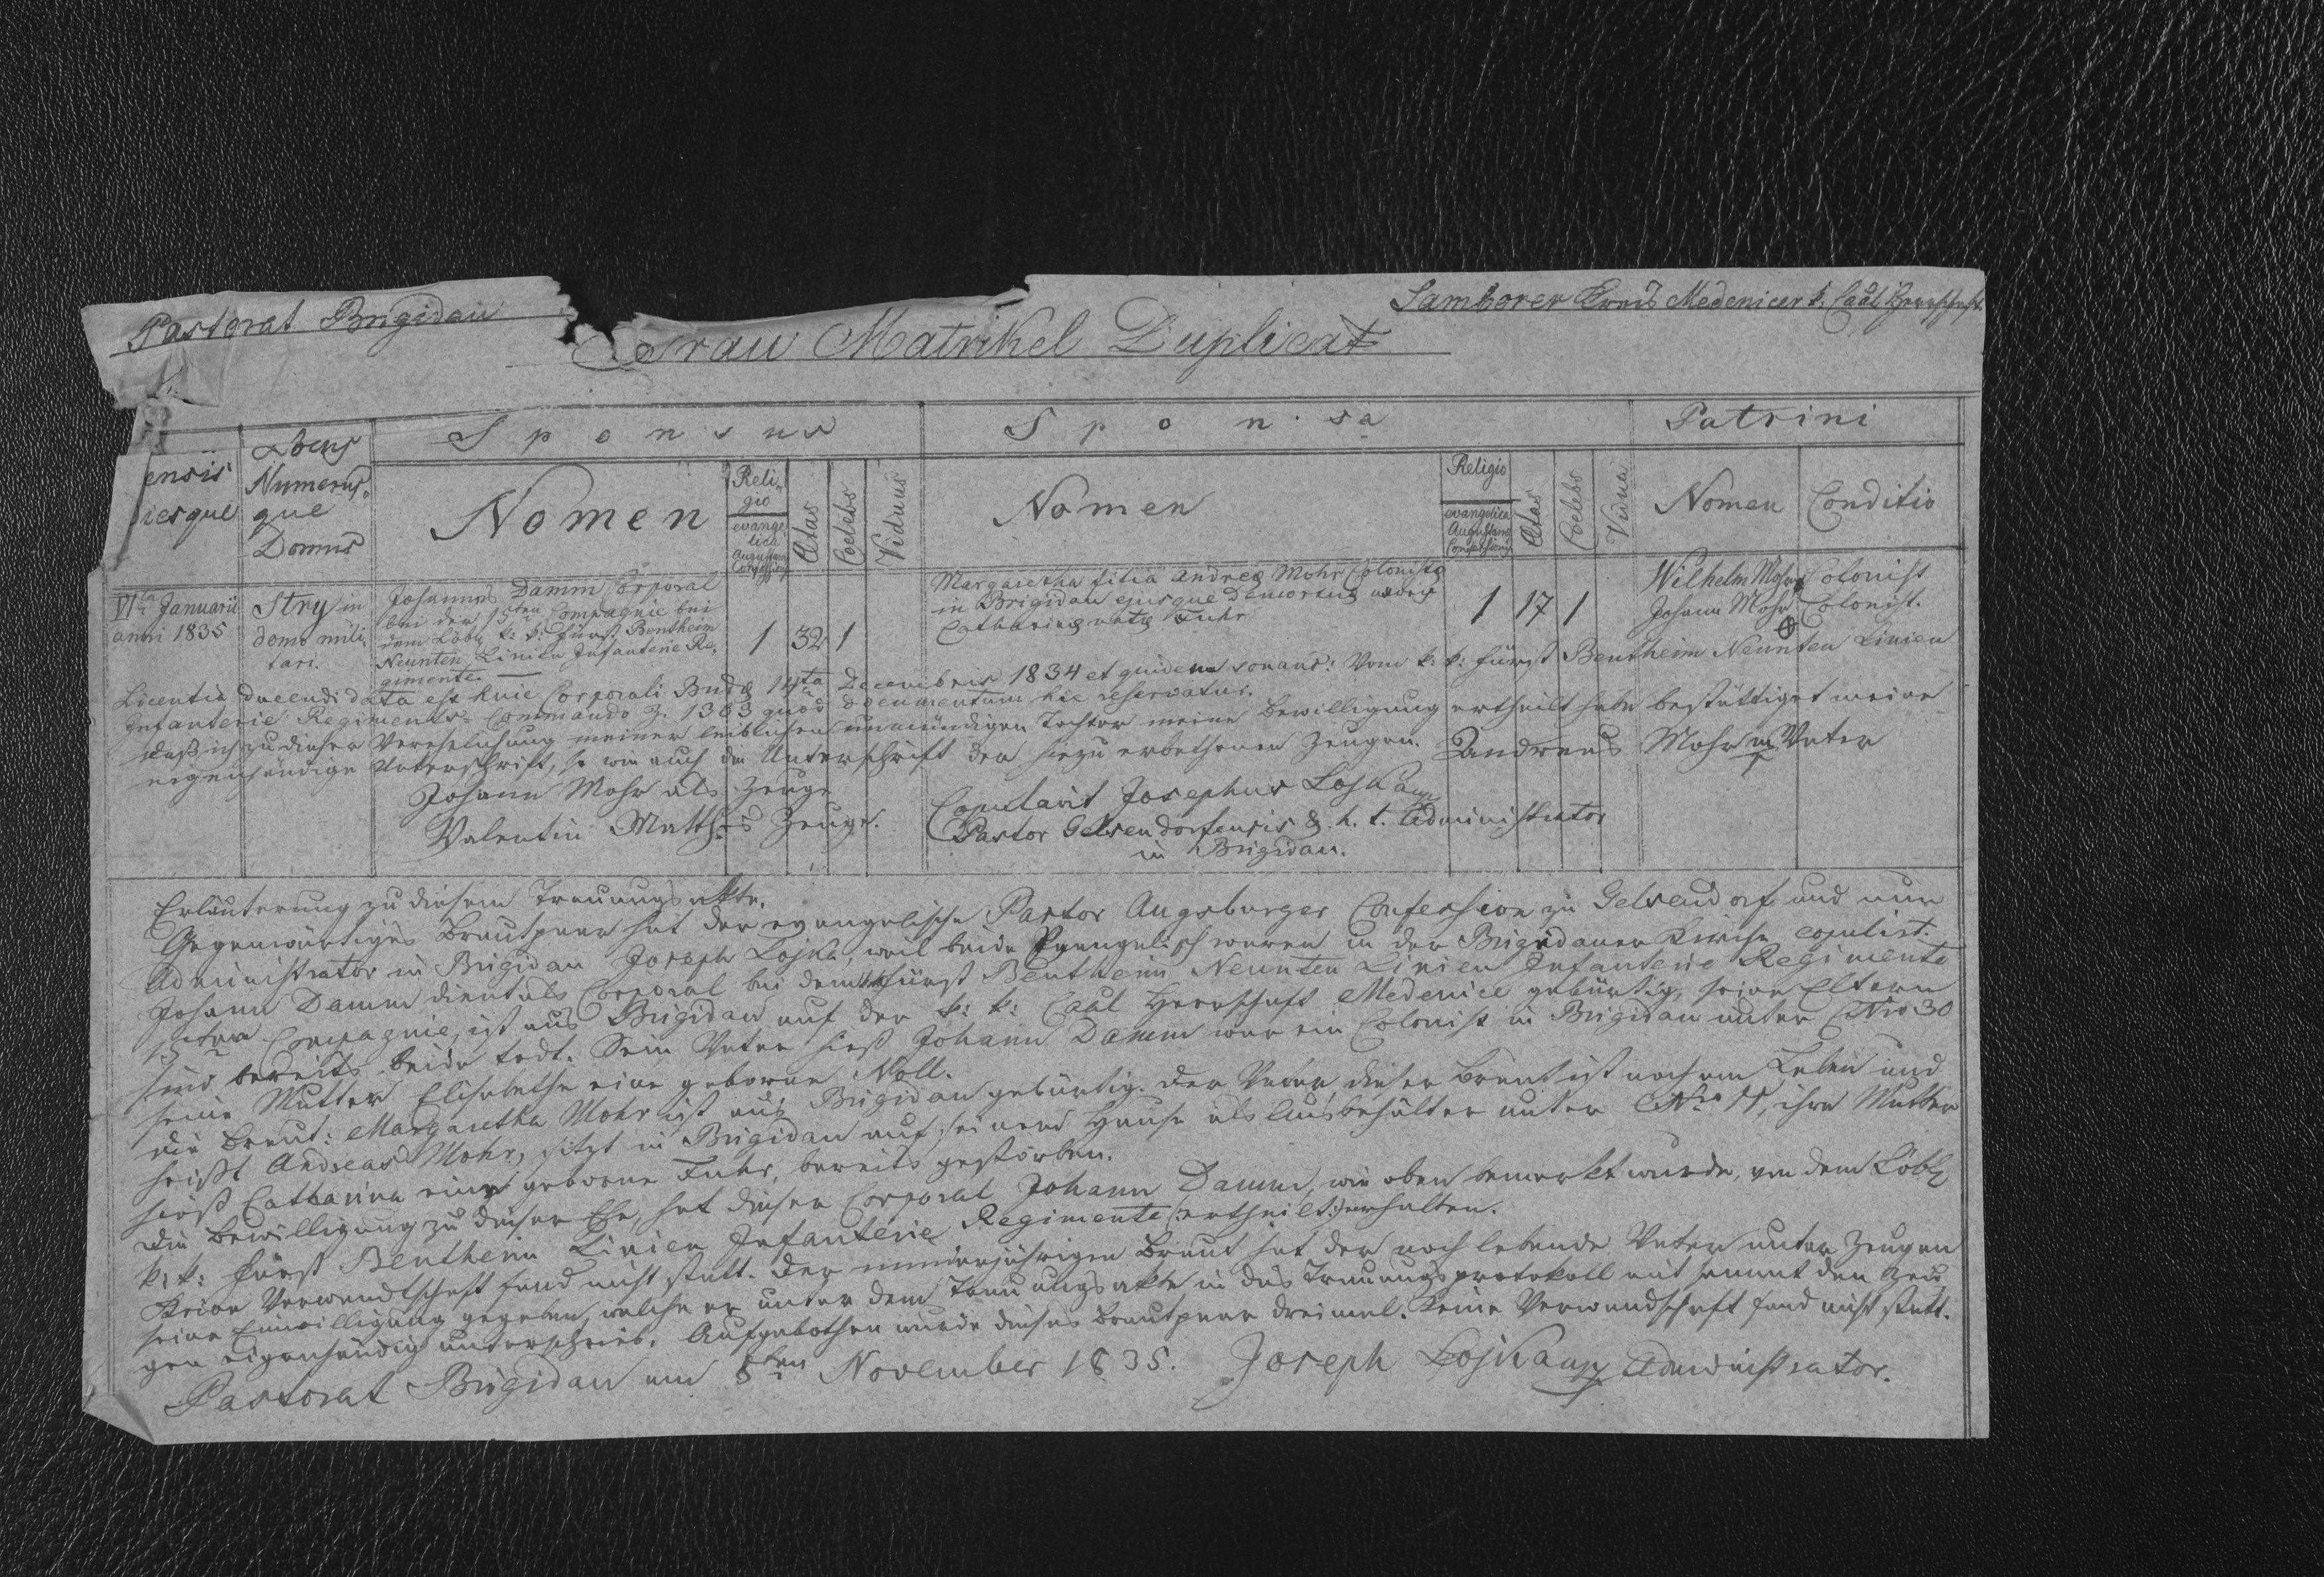 Pastorat Brigidau
Samborer Kreis Medenicer k: Caal Herrschaft.
Trau Matrikel Duplicat
Sponsus
Sponsa
Patrini
ensis
iesque
Locus
Numerus
que
Domus
Nomen
Reli
gio
evange
lica
Augustanae
Confessionis
Ætas
Coelebs
Viduus
Nomen
Religio
evangelica
Augustanae
Confessionis
Ætas
Coelebs
Vidua
Nomen
Conditio
VIta Januarii
anni 1835
Stry in
domo mili
tari.
Johannes Damm Corporal
bei der 15ten Compagnie bei
dem Löbl k: k: Fürst Bentheim
Neunten Linien Infanterie Re
gimente.
1 32 1
Margaretha filia Andreæ Mohr Colonistæ
in Brigidau ejusque demortuæ uxoris
Catharinæ natæ Fuhr
1 17 1
Wilhelm Mohr Colonist
Johann Mohr Colonist.
Licentia ducendi data est huic Corporali Budæ 14ta Decembris 1834 et quidem sonans: Vom k: k: Fürst Bentheim Neunten Linien
Infanterie Regiments-Commando Z. 1363 quod documentum hic reservatur.
Daß ich zu dieser Verehelichung meiner leiblichen unmündigen Tochter meine Bewilligung ertheilt habe bestättiget meine
eigenhändige Unterschrift, so wie auch die Unterschrift der hiezu erbethenen Zeugen. Andreas Mohr Vater
Johann Mohr als Zeuge
Valentin Matthes Zeuge.
Copulavit Josephus Lojka
Pastor Gelsendorfensis & h. t. Administrator
in Brigidau.
Erläuterung zu diesem Trauungsakte.
Gegenwärtiges Brautpaar hat der evangelische Pastor Augsburger Confession zu Gelsendorf und nun
Administrator in Brigidau Joseph Lojka, weil beide Evangelisch waren in der Brigidauer Kirche copulirt.
Johann Damm dient als Corporal bei dem Fürst Bentheim Neunten Linien Infanterie Regimente
Compagnie, ist aus Brigidau auf der k: k: Caal Herrschaft Medenice gebürtig, seine Eltern
sind bereits beide todt. Sein Vater hieß Johann Damm war ein Colonist in Brigidau unter Nro 30
seine Mutter Elisabetha eine geborne Noll.
Die Braut: Margaretha Mohr ist aus Brigidau gebürtig. Der Vater dieser Braut ist noch am Leben und
heißt Andreas Mohr, sitzt in Brigidau auf seinem Hause als Ausbehälter unter CNro 11, ihre Mutter
hieß Catharina eine geborne Fuhr, bereits gestorben.
Die Bewilligung zu dieser Ehe, hat dieser Corporal Johann Damm, wie oben bemerkt wurde, von dem Löbl
k: k: Fürst Bentheim Linien Infanterie Regimente (:ertheilt:) erhalten.
Keine Verwandtschaft fand nicht statt. Der minderjährigen Braut hat der noch lebende Vater unter Zeugen
seine Einwilligung gegeben, welche er unter dem Trauungsakte in das Trauungsprotokoll mit sammt den Zeu
gen eigenhändig unterschrieb. Aufgebothen wurde dieses Brautpaar dreimal. Keine Verwandschaft fand nicht statt.
Pastorat Brigidau am 8ten November 1835. Joseph Lojka Administrator.